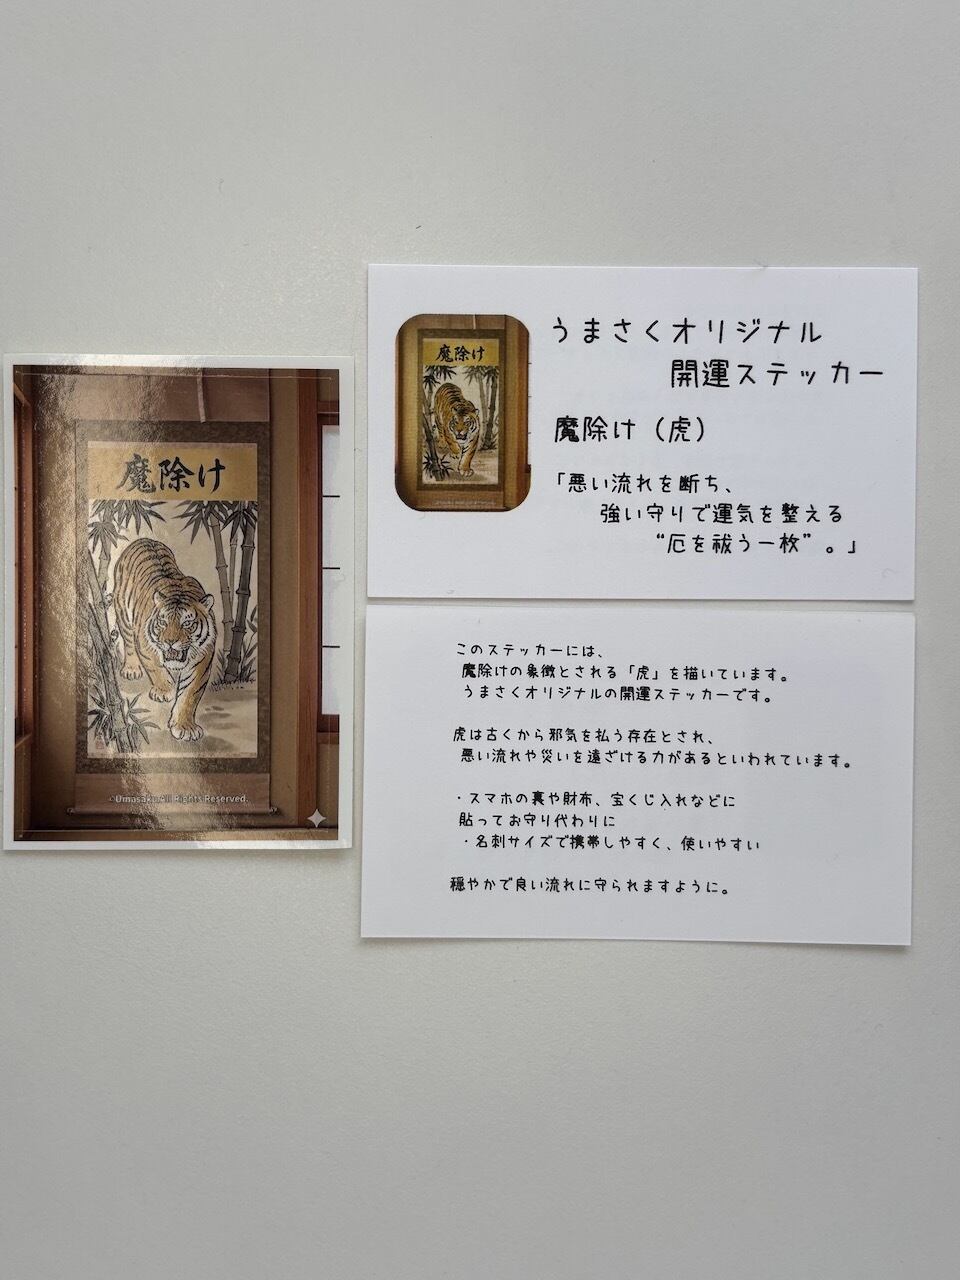 魔除け
©Umasaku All Rights Reserved.
魔除け
うまさくオリジナル
開運ステッカー
魔除け（虎）
「悪い流れを断ち、
強い守りで運気を整える
“厄を祓う一枚”。」
このステッカーには、
魔除けの象徴とされる「虎」を描いています。
うまさくオリジナルの開運ステッカーです。
虎は古くから邪気を払う存在とされ、
悪い流れや災いを遠ざける力があるといわれています。
・スマホの裏や財布、宝くじ入れなどに
貼ってお守り代わりに
・名刺サイズで携帯しやすく、使いやすい
穏やかで良い流れに守られますように。